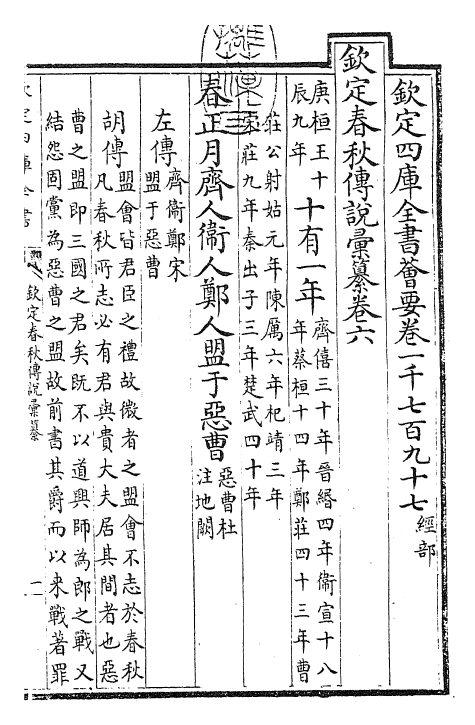 欽定四庫全書薈要卷一千七百九十七 經部
欽定春秋傳說彙纂卷六
庚桓王十
辰九年
十有一年
齊僖三十年晉緡四年衞宣十八
年蔡桓十四年鄭莊四十三年曹
莊公射始元年陳厲六年杞靖三年
宋莊九年秦出子三年楚武四十年
春正月齊人衛人鄭人盟于惡曹
惡曹杜
注地闕
左傳
齊衛鄭宋
盟于惡曹
胡傳
盟會皆君臣之禮故微者之盟會不志於春秋
凡春秋所志必有君與貴大夫居其間者也惡
曹之盟即三國之君矣既不以道興師為郎之戰又
結怨固黨為惡曹之盟故前書其爵而以來戰著罪
欽定四庫全書
欽定春秋傳說彙纂
一